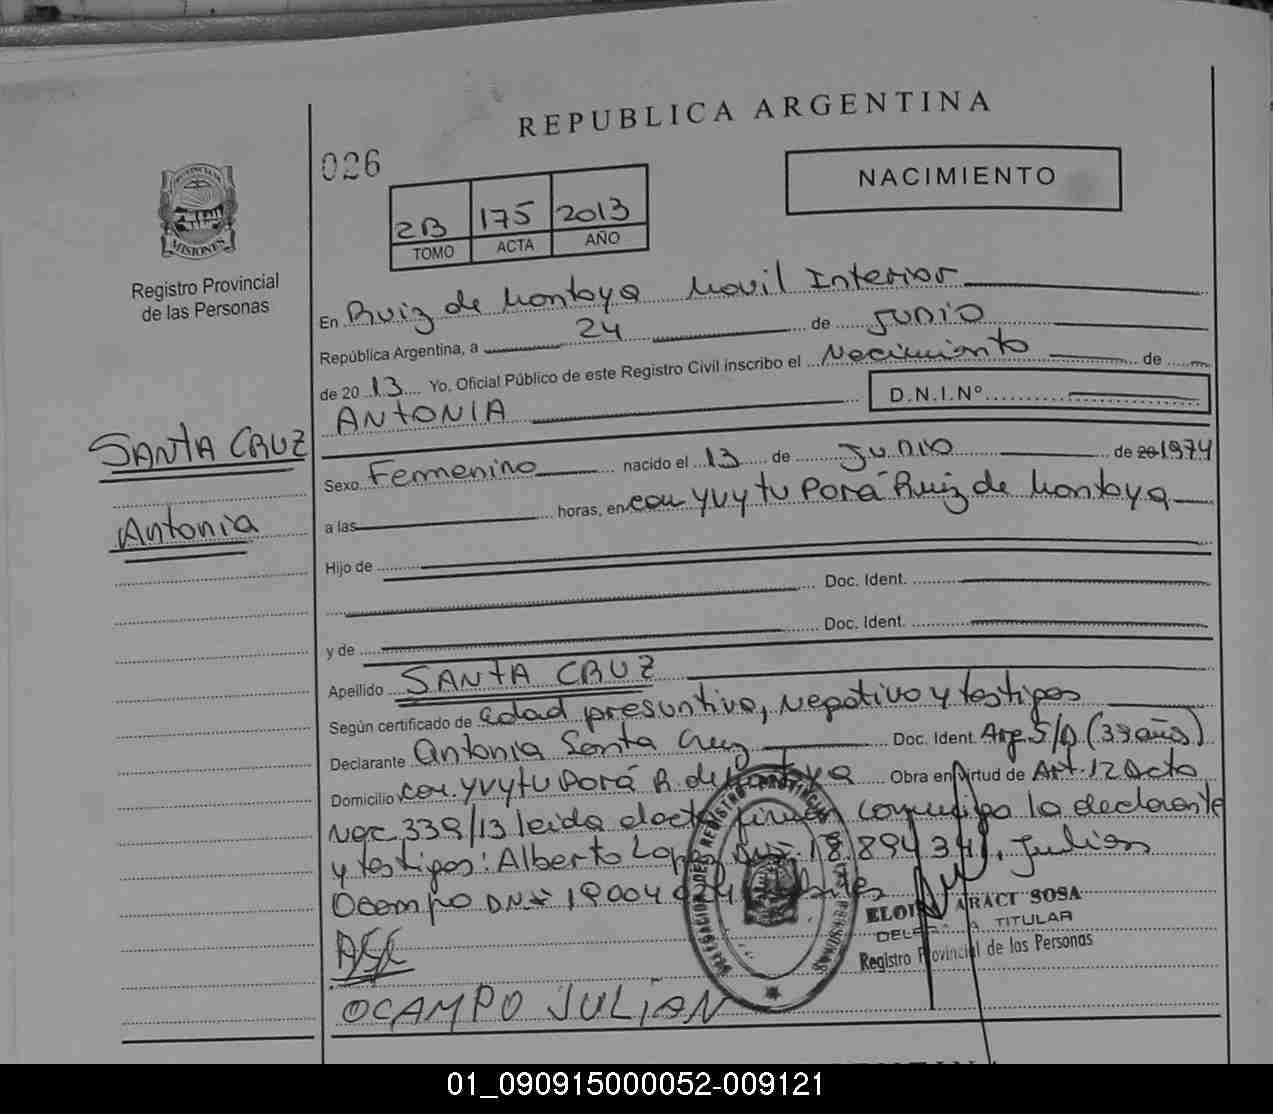 REPUBLICA ARGENTINA
026
NACIMIENTO
2B 175 2013
TOMO ACTA AÑO
MISIONES
Registro Provincial
de las Personas
En Ruiz de Montoya Movil Interior
República Argentina, a 24 de JUNIO
de 20 13 Yo, Oficial Público de este Registro Civil inscribo el Nacimiento de
ANTONIA
D.N.I.Nº
SANTA CRUZ
Antonia
Sexo Femenino nacido el 13 de JUNIO de 20 1974
a las horas, en com yvytu Porá Ruiz de Montoya
Hijo de
Doc. Ident.
y de Doc. Ident.
Apellido SANTA CRUZ
Según certificado de edad presuntiva, Negativo y testigos
Declarante Antonia Santa Cruz Doc. Ident. Arg. S/D (39 años)
Domicilio com. yvytu Porá R. de Montoya Obra en virtud de Art. 12 Dcto
Nº 339/13 leida el acta firman conmigo la declarante
y testigos: Alberto Lopez DNI 18.894.341, Julian
Ocampo DNI 19004
OCAMPO JULIAN
DELEGACION DEL REGISTRO PROVINCIAL DE LAS PERSONAS
ARACI SOSA
TITULAR
Registro Provincial de las Personas
01_090915000052-009121